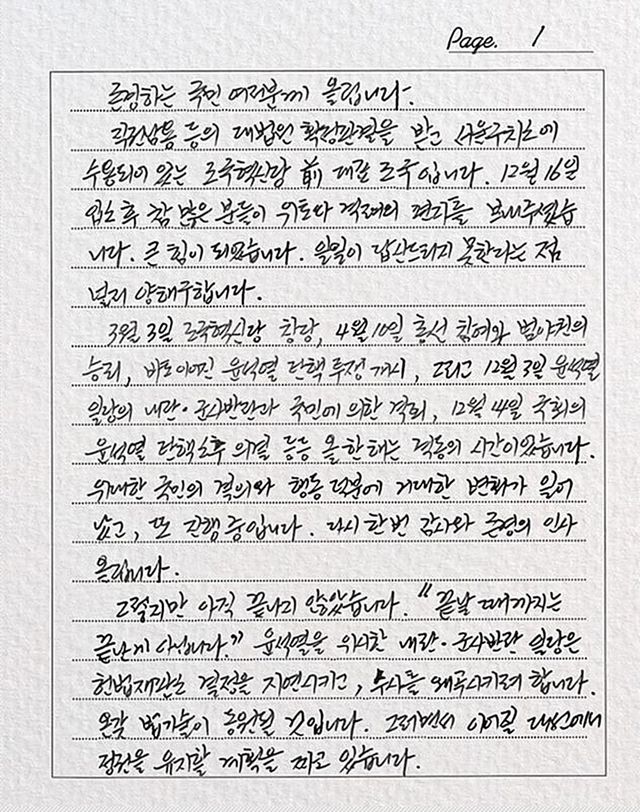 Page. 1
존경하는 국민 여러분께 올립니다.
직권남용 등의 대법원 확정판결을 받고 서울구치소에
수용되어 있는 조국혁신당 前 대표 조국입니다. 12월 16일
입소 후 참 많은 분들이 위로와 격려의 편지를 보내주셨습
니다. 큰 힘이 되었습니다. 일일이 답신드리지 못한다는 점
널리 양해구합니다.
3월 3일 조국혁신당 창당, 4월 10일 총선 참여와 범야권의
승리, 바로이어진 윤석열 탄핵 투쟁 개시, 그리고 12월 3일 윤석열
일당의 내란·군사반란과 국민에 의한 격퇴, 12월 14일 국회의
윤석열 탄핵소추 의결 등등 올 한 해는 격동의 시간이었습니다.
위대한 국민의 결의와 행동 덕분에 거대한 변화가 일어
났고, 또 진행 중입니다. 다시 한번 감사와 존경의 인사
올립니다.
그렇지만 아직 끝나지 않았습니다. "끝날 때까지는
끝난게 아닙니다." 윤석열을 위시한 내란·군사반란 일당은
헌법재판소 결정을 지연시키고, 수사를 왜곡시키려 합니다.
온갖 법기술이 동원될 것입니다. 그러면서 이어질 대선에서
정권을 유지할 계획을 짜고 있습니다.